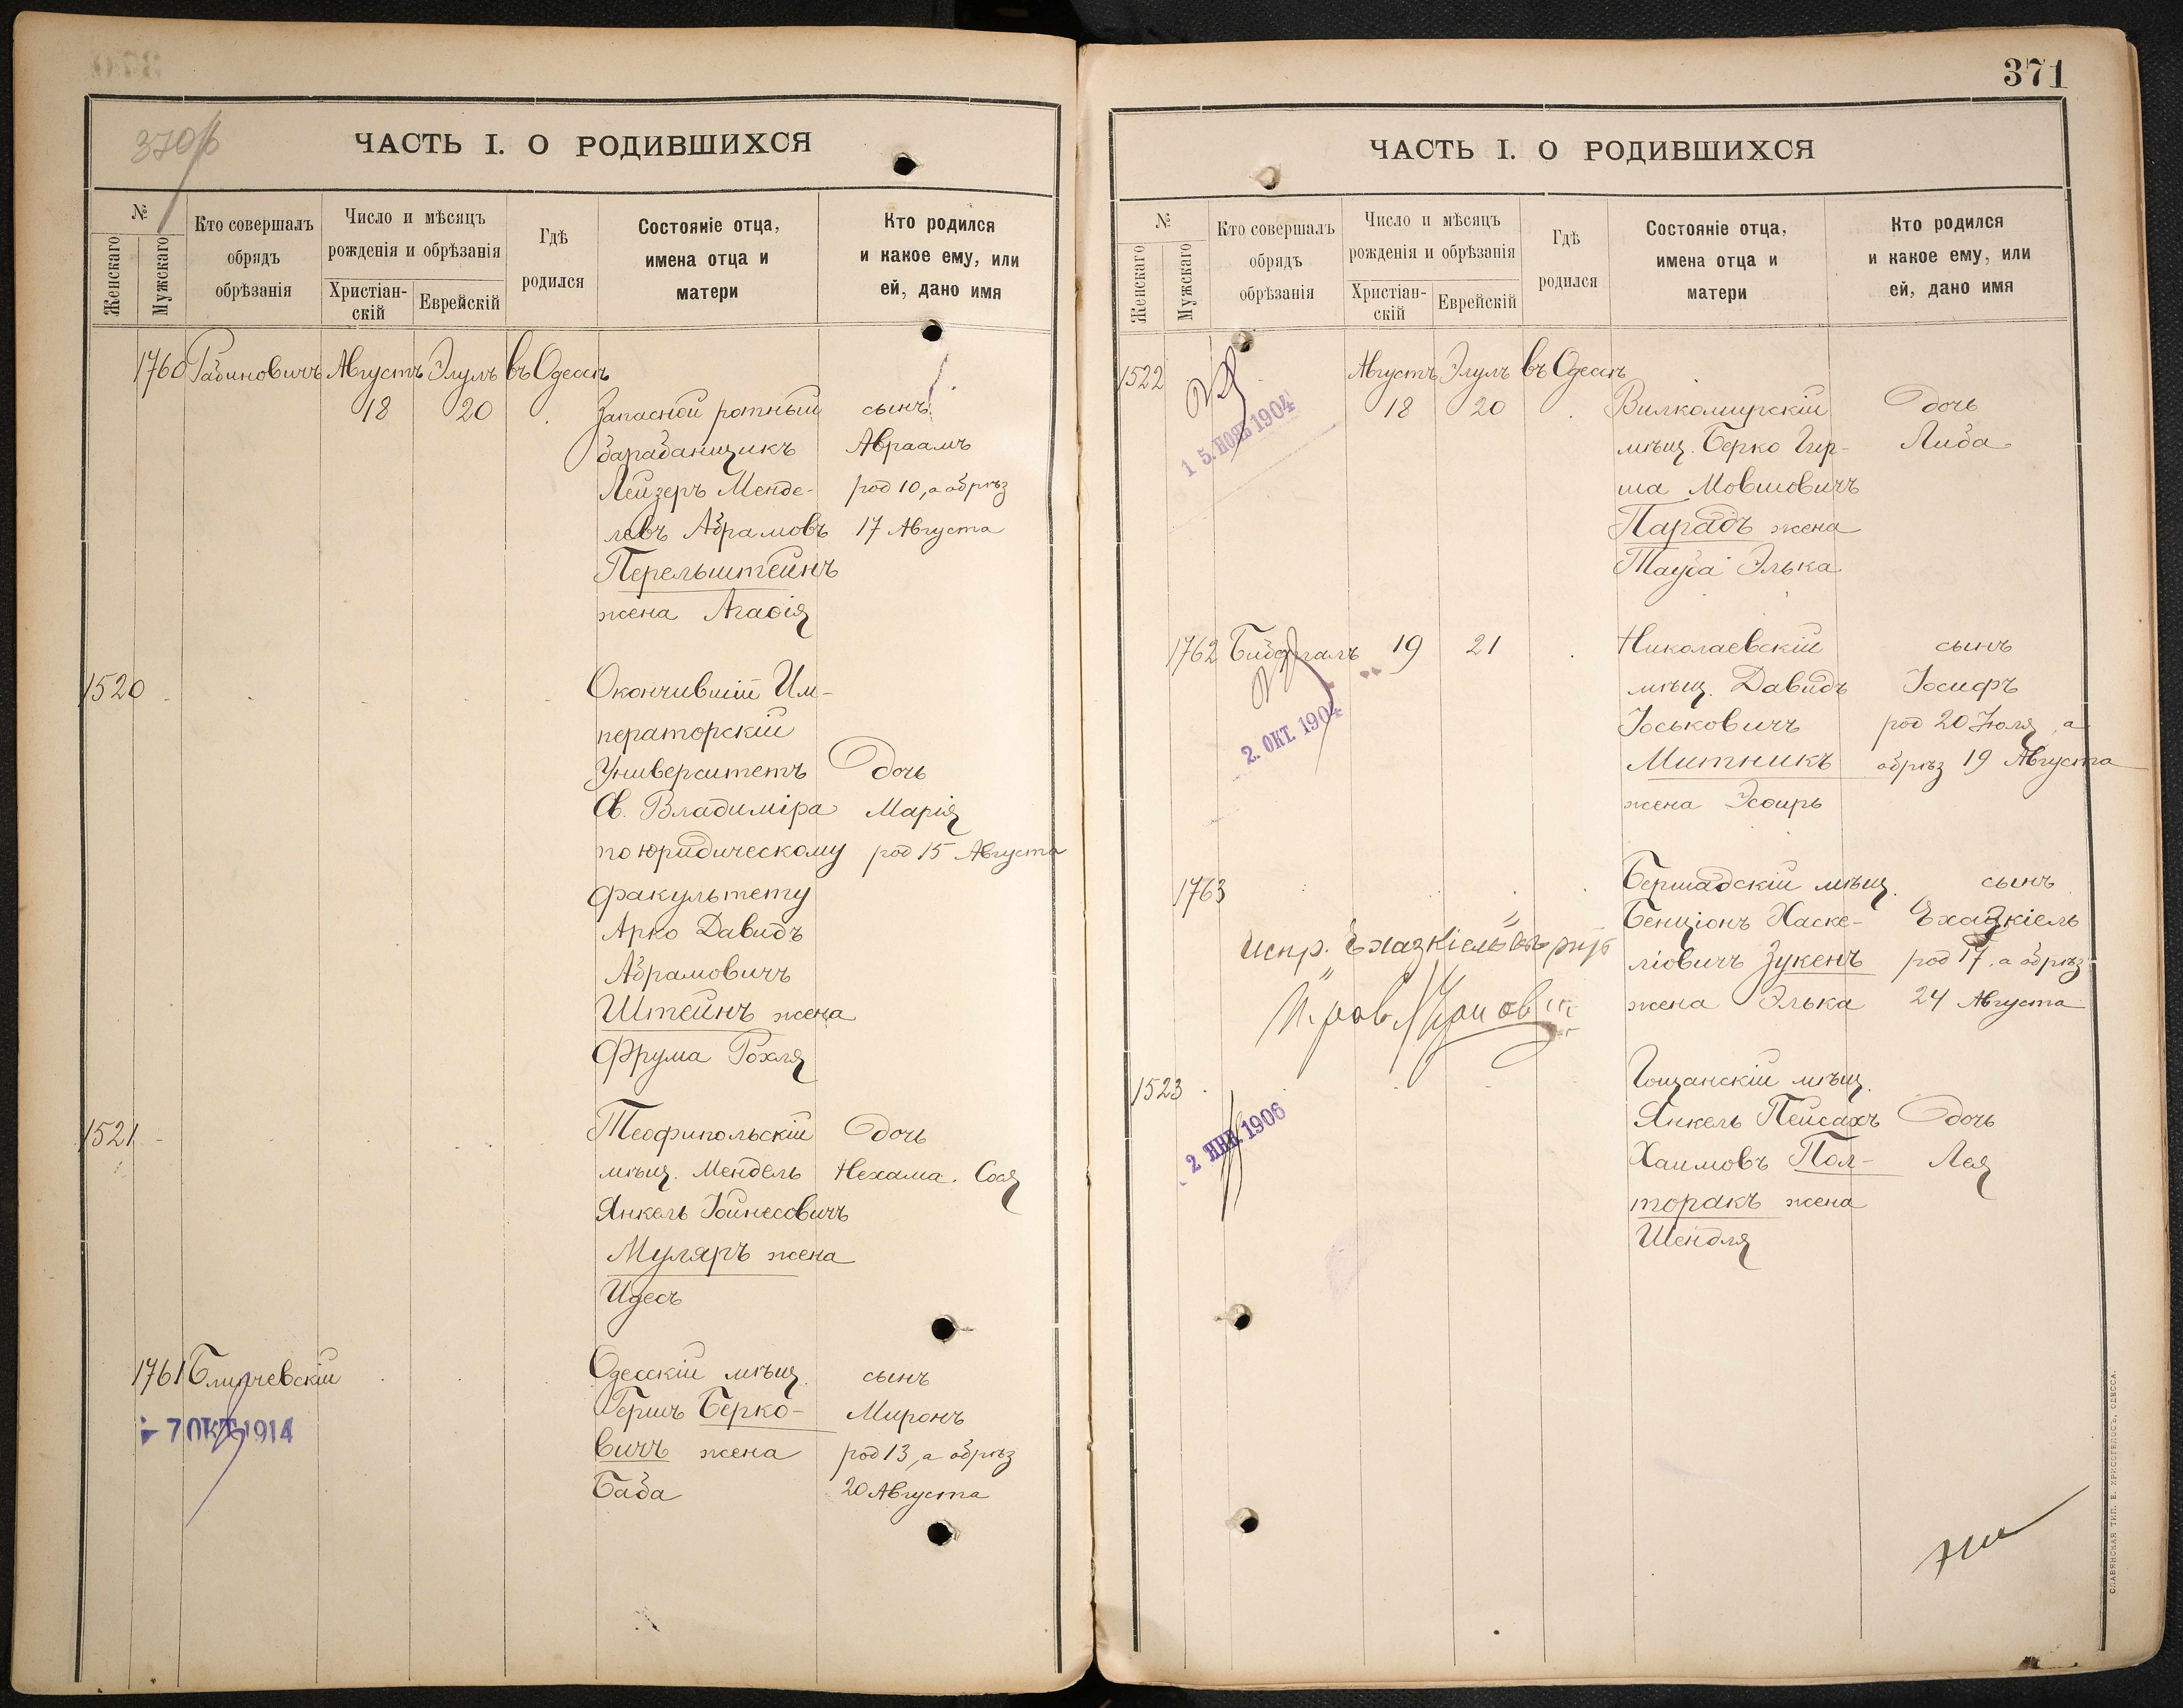 370б
ЧАСТЬ I. О РОДИВШИХСЯ
№
Женскаго
Мужскаго
Кто совершалъ
обрядъ
обрѣзанія
Число и мѣсяцъ
рожденія и обрѣзанія
Христіан-
скій
Еврейскій
Гдѣ
родился
Состояніе отца,
имена отца и
матери
Кто родился
и какое ему, или
ей, дано имя
1760 Рабиновичъ Августъ Элулъ въ Одессѣ
18 20 Запасной ротный сынъ
барабанщикъ Авраамъ
Лейзеръ Менде- род 10, а обрѣз
левъ Абрамовъ 17 Августа
Перельштейнъ
жена Агафія
1520 Окончившій Им-
ператорскій
Университетъ Дочь
Св. Владиміра Марія
по юридическому род 15 Августа
факультету
Арко Давидъ
Абрамовичъ
Штейнъ жена
Фрума Рохля
1521 Теофипольскій Дочь
мѣщ. Мендель Нехама Сося
Янкель Іойнесовичъ
Муляръ жена
Идесъ
1761 Блинчевскій Одесскій мѣщ. сынъ
7 ОКТ 1914 Гершъ Берко- Миронъ
вичъ жена род 13, а обрѣз
Баба 20 Августа
371
ЧАСТЬ I. О РОДИВШИХСЯ
№
Женскаго
Мужскаго
Кто совершалъ
обрядъ
обрѣзанія
Число и мѣсяцъ
рожденія и обрѣзанія
Христіан-
скій
Еврейскій
Гдѣ
родился
Состояніе отца,
имена отца и
матери
Кто родился
и какое ему, или
ей, дано имя
1522 Августъ Элулъ въ Одессѣ
15. НОЯБ 1904 18 20 Вилкомирскій Дочь
мѣщ. Берко Гер- Либа
ша Мовшовичъ
Парадъ жена
Тауба Элька
1762 19 21 Николаевскій сынъ
мѣщ. Давидъ Іосифъ
2. ОКТ. 1904 Іоськовичъ род 20 Іюля, а
Митникъ обрѣз 19 Августа
жена Эсфирь
1763 Бершадскій мѣщ. сынъ
Бенціонъ Хаске- Ехазкіель
испр. Ехазкіель
ліовичъ Зукенъ род 17, а обрѣз
жена Элька 24 Августа
1523 Гощанскій мѣщ.
2 ЯНВ. 1906 Янкель Пейсахъ Дочь
Хаимовъ Пол- Лея
торакъ жена
Шендля
СЛАВЯНСКАЯ ТИП. Е. ХРИСОГЕЛОСЪ, ОДЕССА.